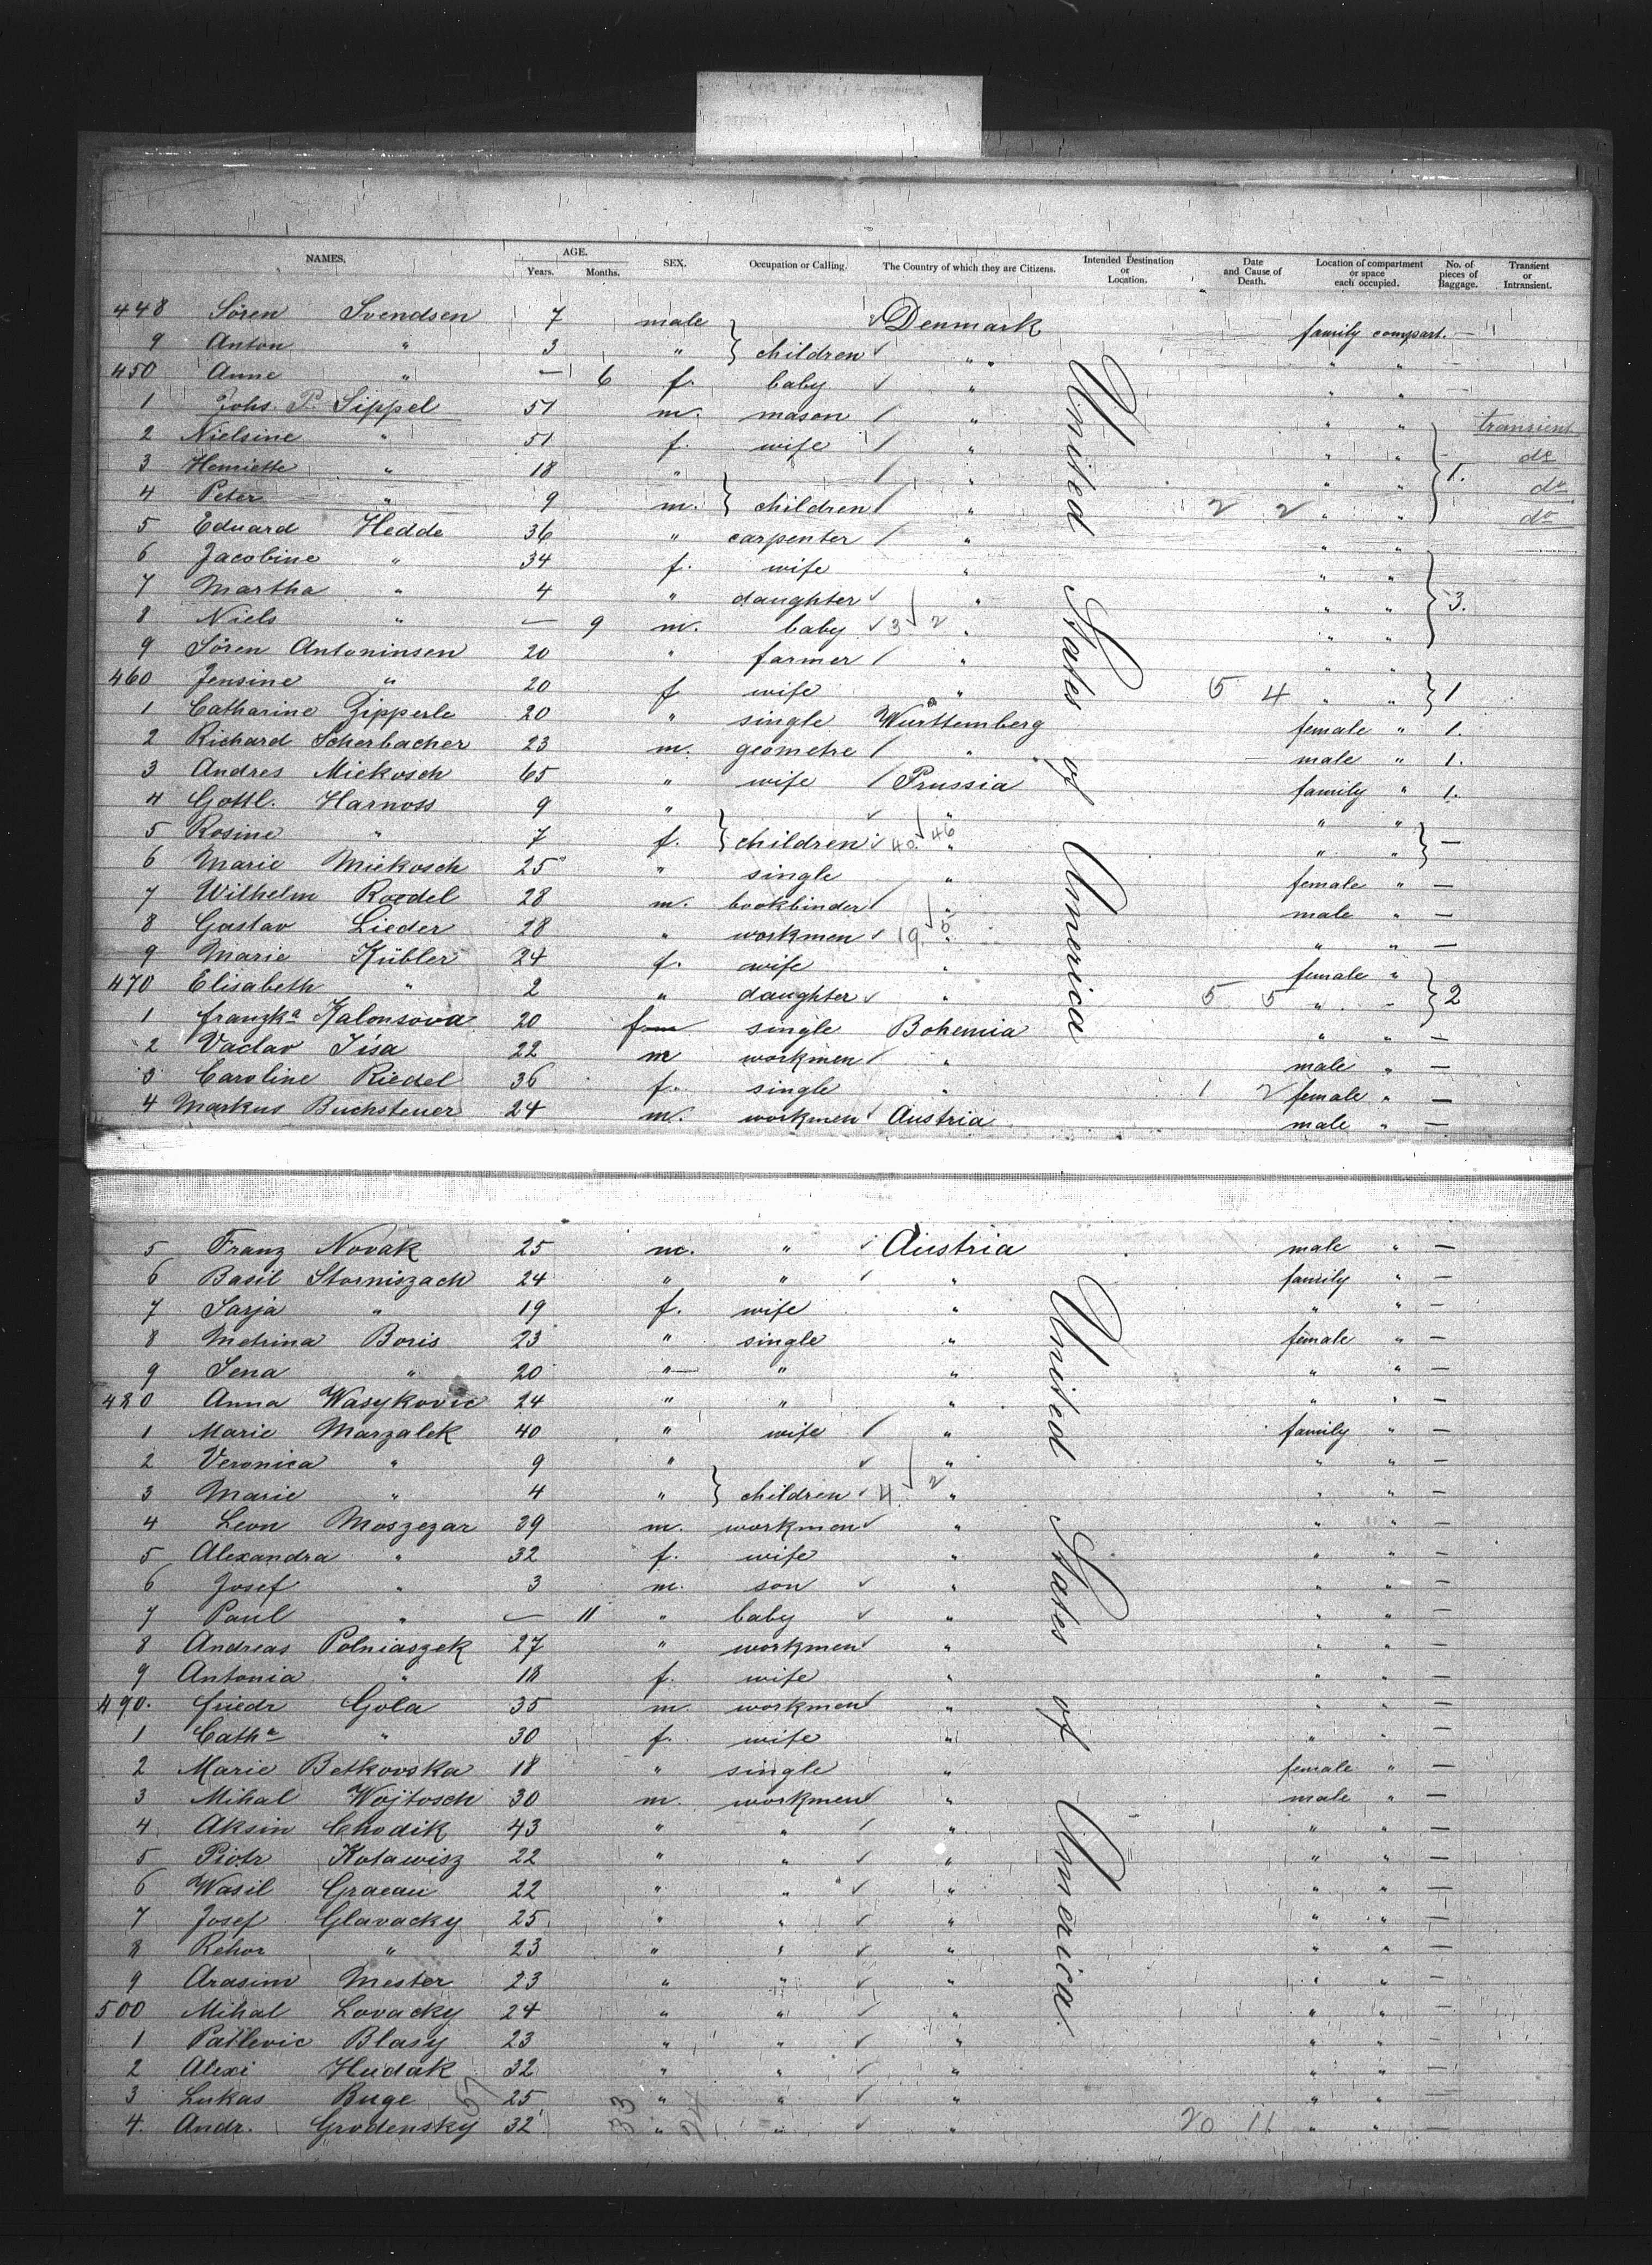 NAMES. AGE. Years. Months. SEX. Occupation or Calling. The Country of which they are Citizens. Intended Destination or Location. Date and Cause of Death. Location of compartment or space each occupied. No. of pieces of Baggage. Transient or Intransient.
448 Sören Svendsen 7 male Denmark family compart. —
9 Anton " 3 " } children " " " —
450 Anne " — 6 f. baby " " " —
1 Johs. P. Sippel 51 m. mason " " " transient
2 Nielsine " 51 f. wife " " " do
3 Henriette " 18 " " " " } 1. do
4 Peter " 9 m. } children " 2 2 " " do
5 Eduard Hedde 36 " carpenter " " "
6 Jacobine " 34 f. wife " " "
7 Martha " 4 " daughter " " " } 3.
8 Niels " — 9 m. baby 3 2 " " "
9 Sören Antoninsen 20 " farmer " " "
460 Jensine " 20 f wife " 5 4 " " } 1
1 Catharine Zipperle 20 " single Württemberg female " 1.
2 Richard Scherbacher 23 m. geometre " male " 1.
3 Andres Miekosch 65 " wife Prussia family " 1.
4 Gottl. Harnoss 9 " " " "
5 Rosine " 7 f. } children 40 46 " " " } —
6 Marie Miekosch 25 " single " female " —
7 Wilhelm Roedel 28 m. bookbinder " male " —
8 Gustav Lieder 28 " workmen 19 5 " " " —
9 Marie Kübler 24 f. wife " female "
470 Elisabeth " 2 " daughter " 5 5 " " } 2
1 Franzka Kalonsova 20 f single Bohemia " " —
2 Vaclav Jisa 22 m workmen " male " —
3 Caroline Riedel 36 f. single " 1 2 female " —
4 Markus Buchsteuer 24 m. workmen Austria male " —
United States of America
5 Franz Novak 25 m. " Austria male " —
6 Basil Storniszach 24 " " " family " —
7 Sarja " 19 f. wife " " " —
8 Metrina Boris 23 " single " female " —
9 Sena " 20 " " " " " —
480 Anna Wasykovic 24 " " " " " —
1 Marie Marzalek 40 " wife " family " —
2 Veronica " 9 " " " " —
3 Marie " 4 " } children 4 2 " " " —
4 Leon Moszezar 39 m. workmen " " " —
5 Alexandra " 32 f. wife " " " —
6 Josef " 3 m. son " " " —
7 Paul " — 11 " baby " " " —
8 Andreas Polniaszek 27 " workmen " " " —
9 Antonia " 18 f. wife " " " —
490. Friedr Gola 35 m. workmen " " " —
1 Catha " 30 f. wife " " " —
2 Marie Betkovska 18 " single " female " —
3 Mihal Wojtosch 30 m. workmen " male " —
4 Aksin Chodik 43 " " " " " —
5 Piotr Kotawisz 22 " " " " " —
6 Wasil Gracau 22 " " " " " —
7 Josef Glavacky 25 " " " " " —
8 Rehor " 23 " " " " " —
9 Arasim Mester 23 " " " " " —
500 Mihal Lovacky 24 " " " " " —
1 Patlevic Blasy 23 " " " " " —
2 Alexi Hudak 32 " " " " " —
3 Lukas Buge 25 " " " " " —
4. Andr. Grodensky 32 " " " 20 11 " " —
57 33 24
United States of America.